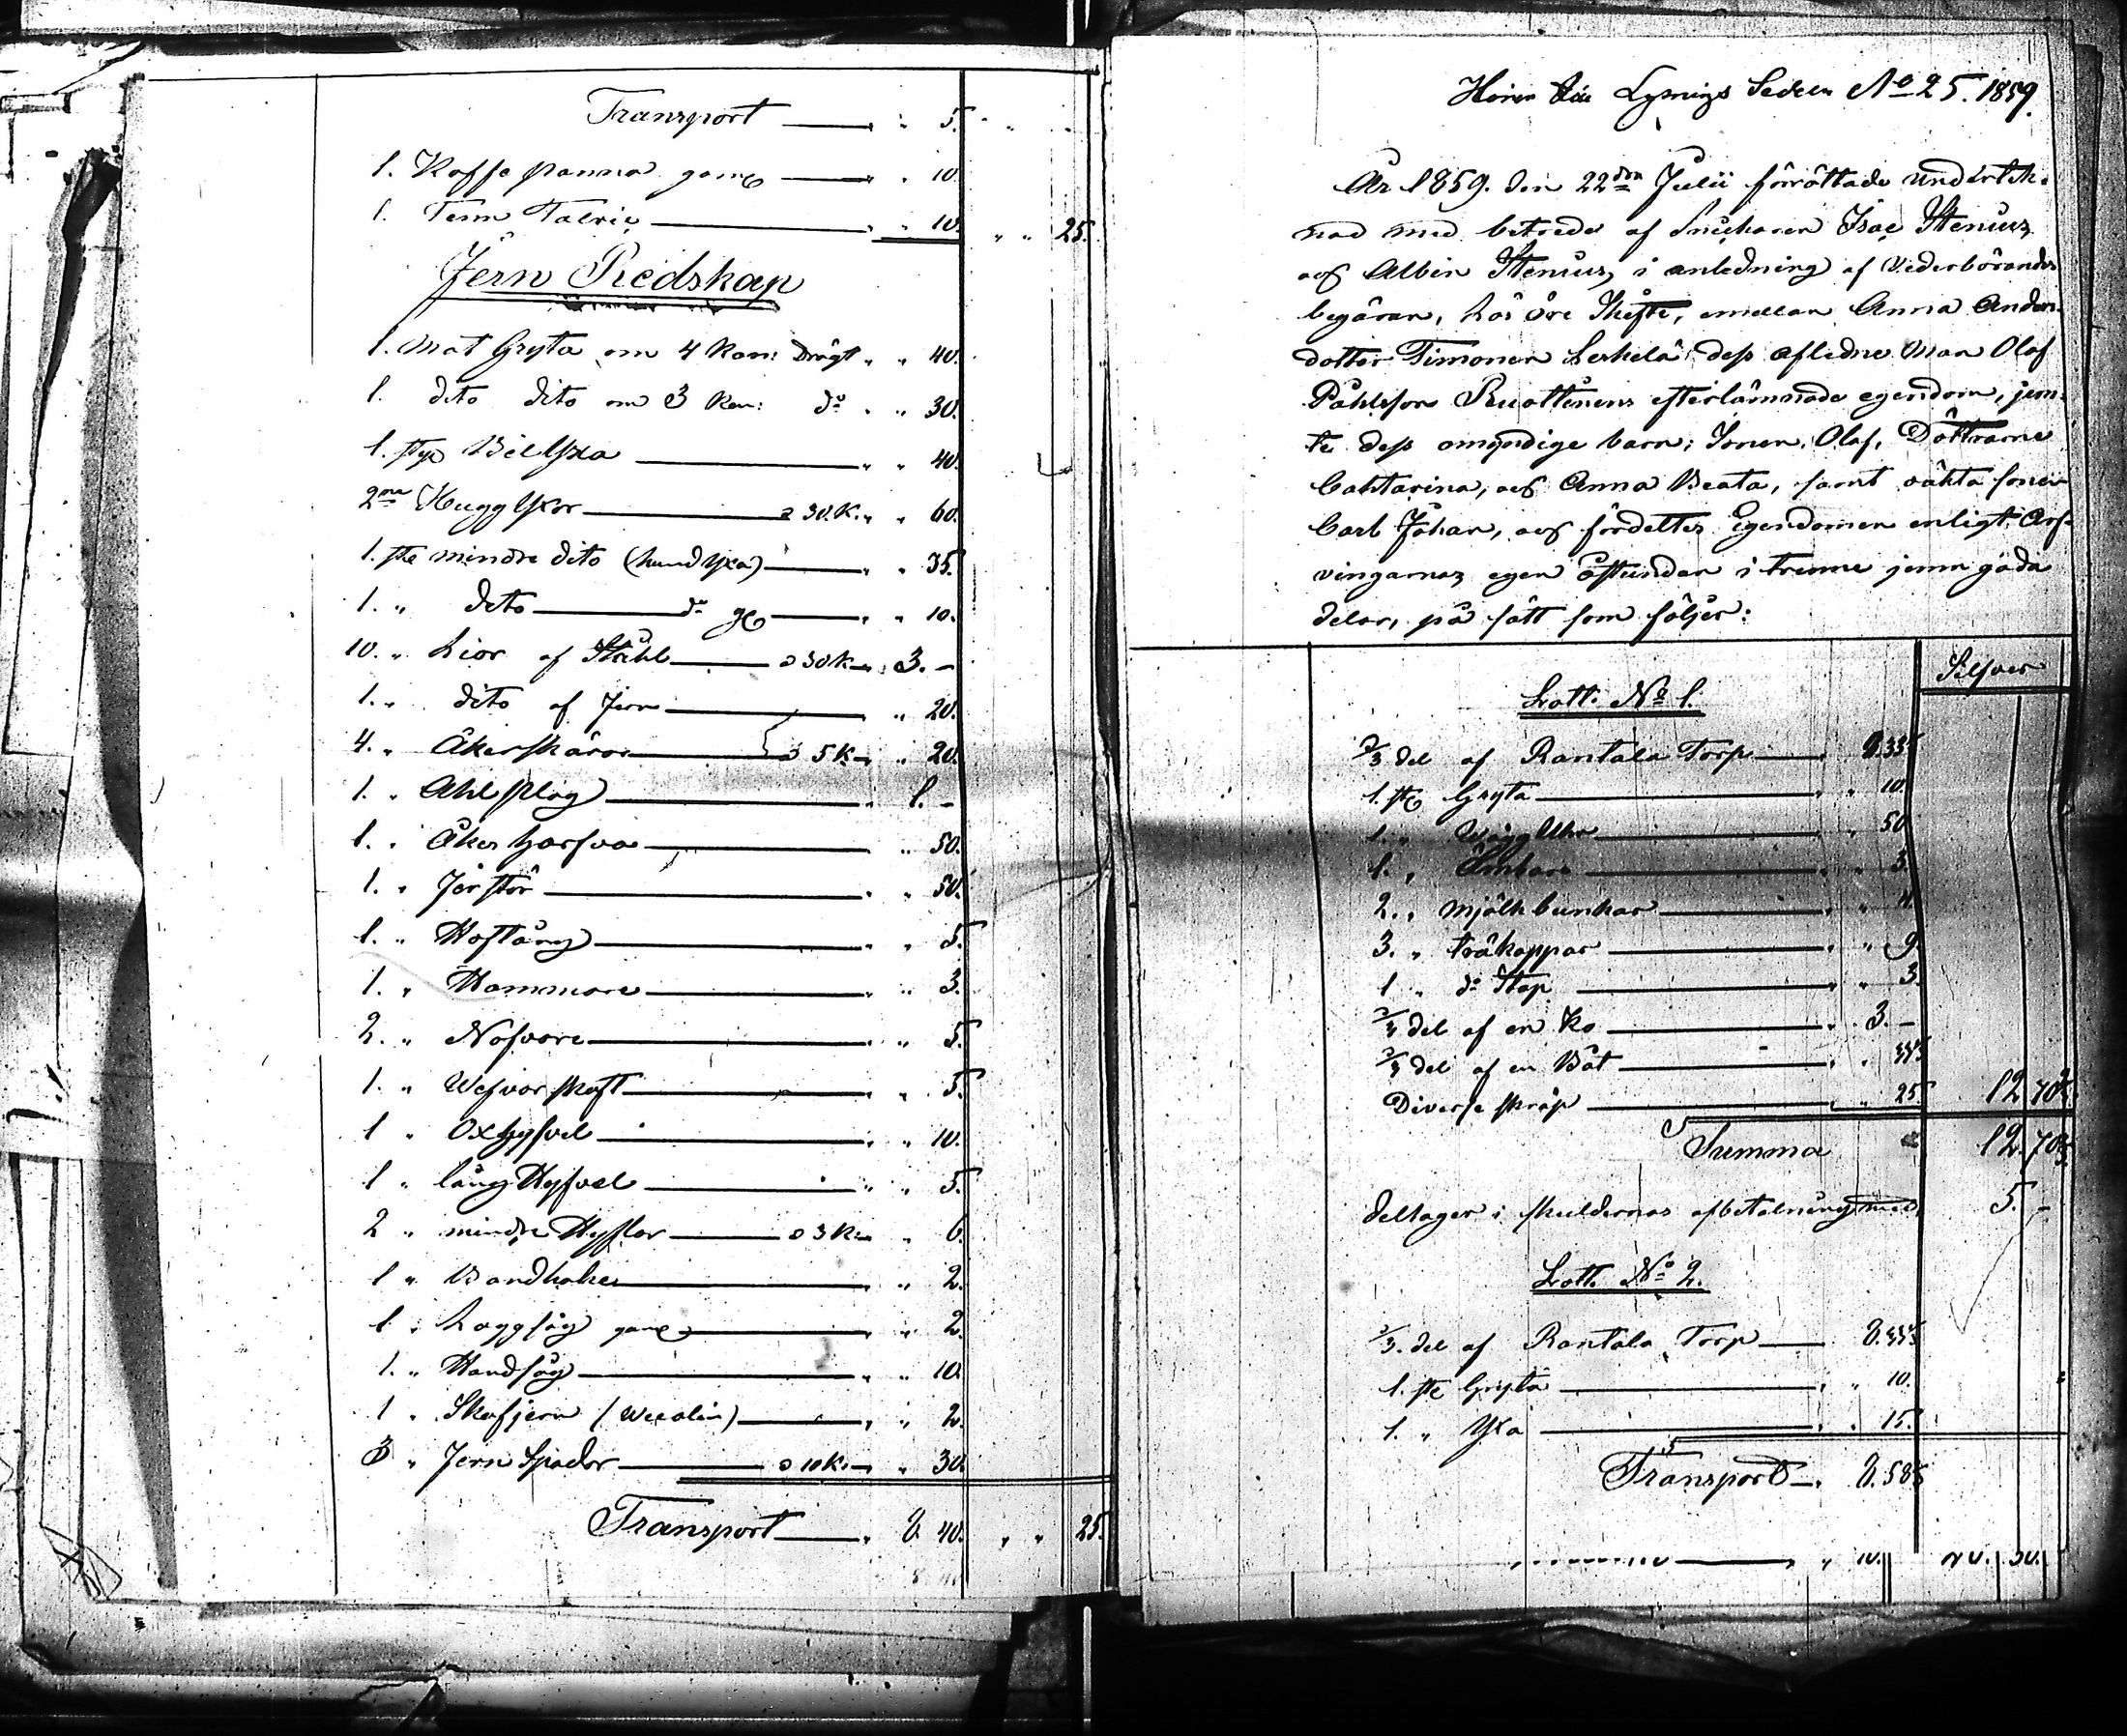 Transport — " " 5. " "
1. Kaffe panna gaml — " " 10.
1. Tenn Talrie — " " 10. " " 25.
Jern Redskap
1. mat Gryta om 4 kan: Drägt " " 40.
1. dito dito om 3 kan: do " " 30.
1. st Bil Yxa — " " 40.
2ne Hugg Yxor — a 30 K. " " 60.
1. st mindre dito (hand Yxa) — " " 35.
1. " dito — do gl — " " 10.
10. " Lior af Ståhl — a 30 K — " 3. –
1. " dito af Jern — " " 20.
4. " Åkerskäror — a 5 K — " " 20.
1. " Ahl plog — " 1. –
1. " Åker harfva — " " 50.
1. " Jer stör — " " 50.
1. " Hoftång — " " 5.
1. " Hammare — " " 3.
2. " Nafvare — " " 5.
1. " Wefvar skaft — " " 5.
1 " Oxhyfvel — " " 10.
1 " lång Hyfvel — " " 5.
2 " mindre Hyflar — a 3 K — " 6.
1 " Bandhake — " " 2.
1 " Laggsåg gaml — " " 2.
1. " Handsåg — " " 10.
1 " Skafjern (Wuolin) — " " 2.
3 " Jern Spador — a 10 K — " 30.
Transport — " 8. 40. " " 25.
Hörer till Lysnings Sedeln No 25. 1859.
År 1859. den 22dra Julii förrättade underteck-
nad med biträde af Snickaren Isac Stenius,
och Albin Stenius, i anledning af Vederbörandes
begäran, lösöre Skifte, emellan Anna Anders-
dotter Timonen Leskelä dess aflidne Man Olof
Påhlsson Ruottinens efterlämnade egendom, jem-
te dess omyndige barn; Sonen, Olof, Döttrarne
Cahtarina, och Anna Beata, samt oäkta sonen
Carl Johan, och fördeltes Egendomen enligt Arf-
vingarnas egen åstundan i trenne jemn goda
delar, på sätt som följer:
Silfver
Lott. No 1.
1/3 del af Rantala Torp — 8.33 1/3
1. st Gryta — " " 10.
1. " Wägg Uhr — " " 50
1. " Ämbare — " " 3.
2. " Mjölk bunkar — " " 4
3. " träkoppar — " " 9.
1 " do Stop — " " 3.
1/3 del af en Ko — " 3. –
1/3 del af en Båt — " " 33 1/3
Diverse skräp — " " 25. 12. 70 2/3
Summa 12. 70 2/3
deltager i skuldernas afbetalning med 5. –
Lott. No 2.
1/3. del af Rantala Torp — 8.33 1/3
1. st Gryta — " " 10.
1. " Yxa — " " 15.
Transport — " 8.58 1/3